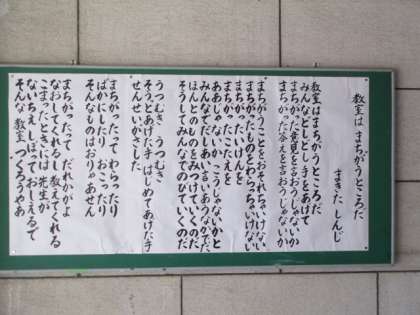 教室は まちがうところだ
まきた しんじ
教室はまちがうところだ
みんなどしどし手をあげて
まちがった意見を言おうじゃないか
まちがった答えを言おうじゃないか
まちがうことをおそれちゃいけない
まちがったものをわらっちゃいけない
まちがった意見を
まちがった答えを
ああじゃないかこうじゃないかと
みんなでだしあい言いあうなかでだ
ほんとのものをみつけていくのだ
そうしてみんなでのびていくのだ
うつむき うつむき
そうっとあげた手はじめてあげた手
せんせいがさした
まちがったって わらったり
ばかにしたり おこったり
そんなものはおりゃあせん
まちがったって だれかがよ
なおしてくれるし教えてくれる
こまったときには先生が
ないちえしぼっておしえるで
そんな教室つくろうやあ